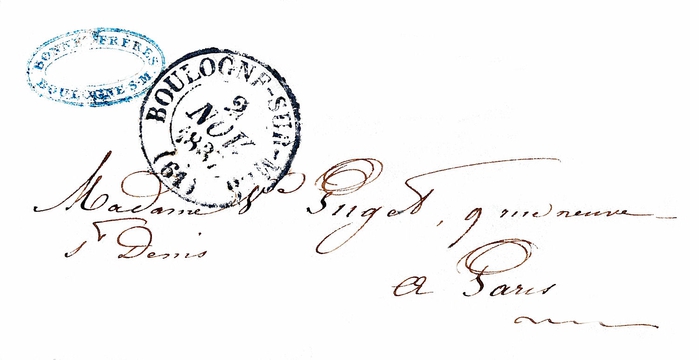 BONNET FRERES
BOULOGNE S-M
BOULOGNE-SUR-MER
9
NOV
1837
(61)
Madame Vve Puget, 9 rue neuve
St Denis
a Paris